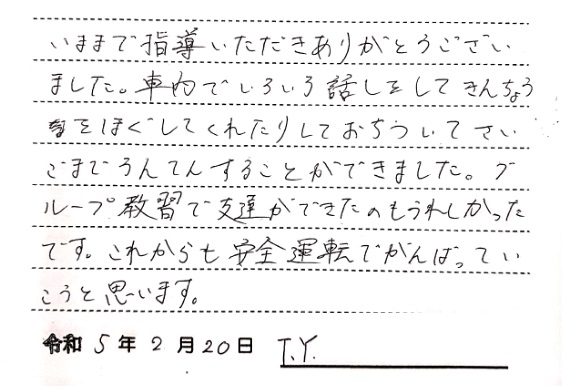 いままで指導いただきありがとうござい
ました。車内でいろいろ話しをしてきんちょう
をほぐしてくれたりしておちついてさい
ごまでうんてんすることができました。グ
ループ教習で友達ができたのもうれしかった
です。これからも安全運転でがんばってい
こうと思います。
令和 5 年 2 月 20 日 T.Y.